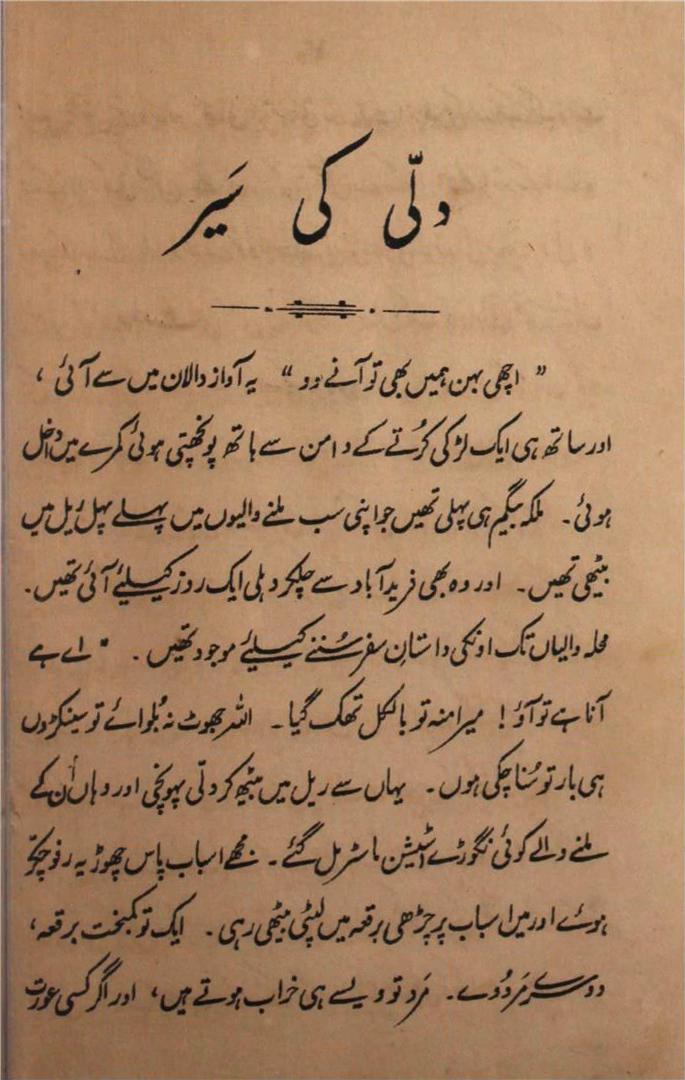 دلّی کی سَیر
” اچھی بہن ہمیں بھی تو آنے دو “ یہ آواز دالان میں سے آئی ،
اور ساتھ ہی ایک لڑکی کُرتے کے دامن سے ہاتھ پونچھتی ہوئی کمرے میں داخل
ہوئی۔ ملکہ بیگم ہی پہلی تھیں جو اپنی سب ملنے والیوں میں پہلے پہل ریل میں
بیٹھی تھیں۔ اور وہ بھی فرید آباد سے چلکر دہلی ایک روز کیلئے آئی تھیں۔
محلہ والیاں تک اونکی داستانِ سفر سُننے کیلئے موجود تھیں۔ ” اے ہے
آنا ہے تو آؤ ! میرا منہ تو بالکل تھک گیا۔ اللہ جھوٹ نہ بُلوائے تو سینکڑوں
ہی بار تو سُنا چکی ہوں۔ یہاں سے ریل میں بیٹھ کر دلّی پہونچی اور وہاں اُن کے
ملنے والے کوئی نگوڑے اسٹیشن ماسٹر مل گئے۔ مجھے اسباب پاس چھوڑ یہ رفو چکّر
ہوئے اور میں اسباب پر چڑھی برقعہ میں لپٹی بیٹھی رہی۔ ایک تو کمبخت برقعہ،
دوسرے مَردُوے۔ مَرد تو ویسے ہی خراب ہوتے ہیں، اور اگر کسی عورت